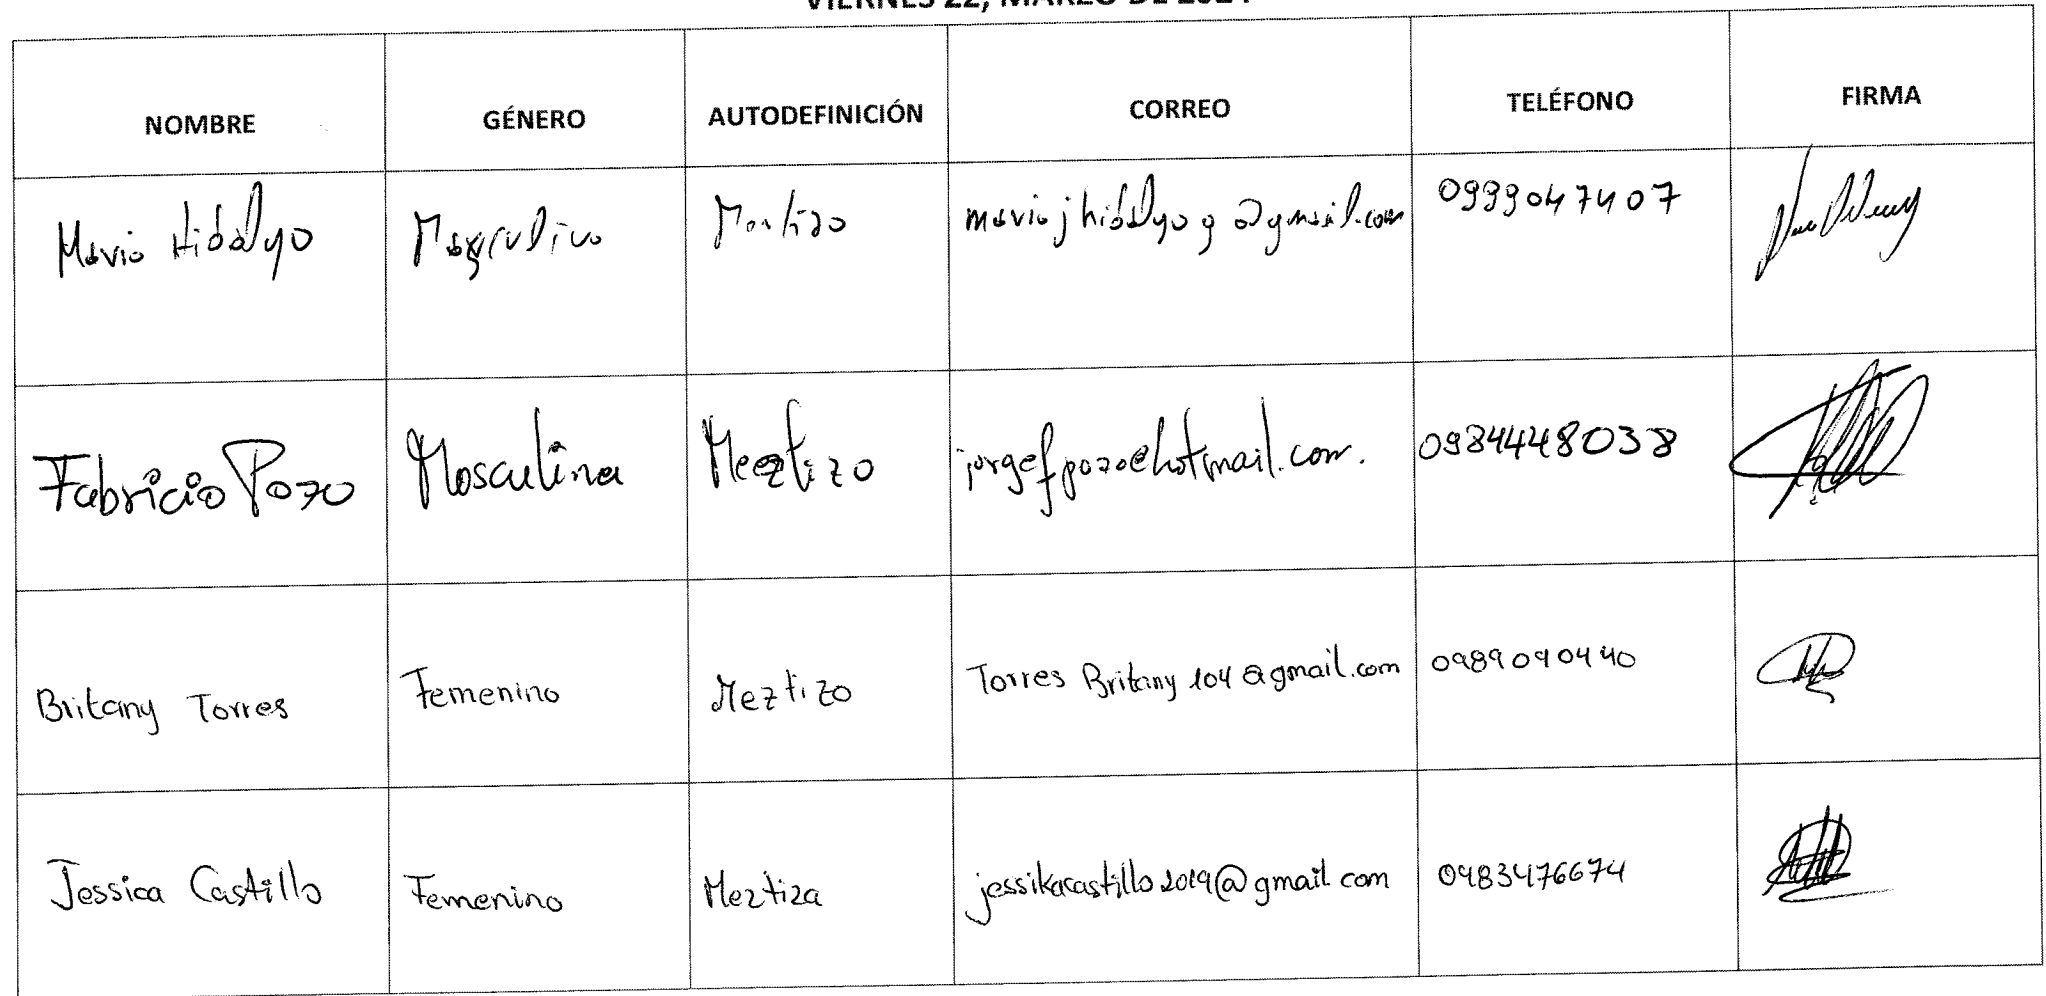 VIERNES 22, MARZO DE 2024
NOMBRE GÉNERO AUTODEFINICIÓN CORREO TELÉFONO FIRMA
Mario Hidalgo Masculino Mestizo mariojhidalgog@gmail.com 0999047407
Fabricio Pozo Masculino Meztizo jorgefpozo@hotmail.com. 0984448038
Britany Torres Femenino Meztizo Torres Britany 104@gmail.com 0989090440
Jessica Castillo Femenino Meztiza jessikacastillo2019@gmail com 0983476674